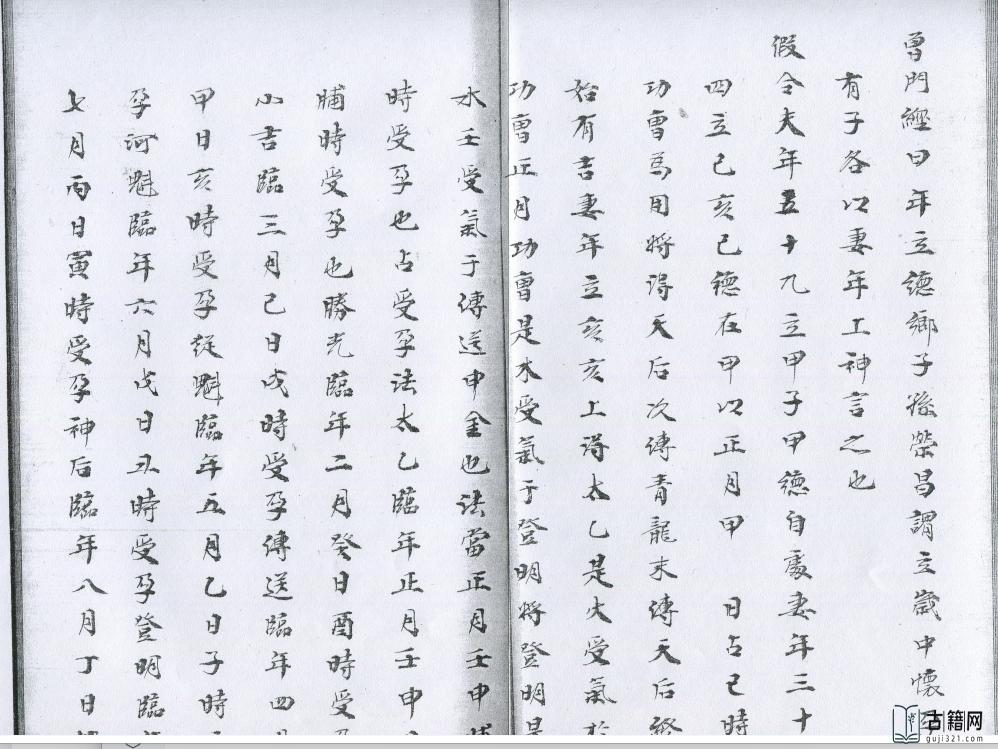 曾門經曰年立德鄉子孫榮昌謂立歲中懷
有子各以妻年上神言之也
假令夫年五十九立甲子甲德自處妻年三十
四立己亥己德在甲以正月甲 日占已時
功曹為用將得天后次傳青龍末傳天后終
始有吉妻年立亥亥上得太乙是火受氣於
功曹正月功曹是木受氣于登明將登明是
水壬受氣于傳送申金也法當正月壬申
時受孕也占受孕法太乙臨年正月壬申
晡時受孕也勝光臨年二月癸日酉時受
小吉臨三月己日戌時受孕傳送臨年四
甲日亥時受孕從魁臨年五月乙日子時
孕河魁臨年六月戊日丑時受孕登明臨
七月丙日寅時受孕神后臨年八月丁日
古籍网
guji321.com